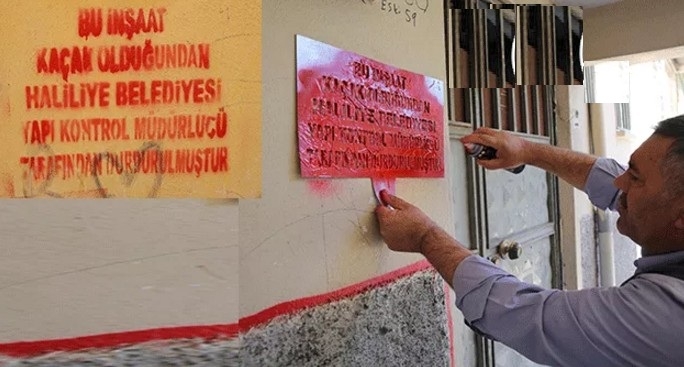 BU İNŞAAT
KAÇAK OLDUĞUNDAN
HALİLİYE BELEDİYESİ
YAPI KONTROL MÜDÜRLÜĞÜ
TARAFINDAN DURDURULMUŞTUR
BU İNŞAAT
KAÇAK OLDUĞUNDAN
HALİLİYE BELEDİYESİ
YAPI KONTROL MÜDÜRLÜĞÜ
TARAFINDAN DURDURULMUŞTUR
Est. 59